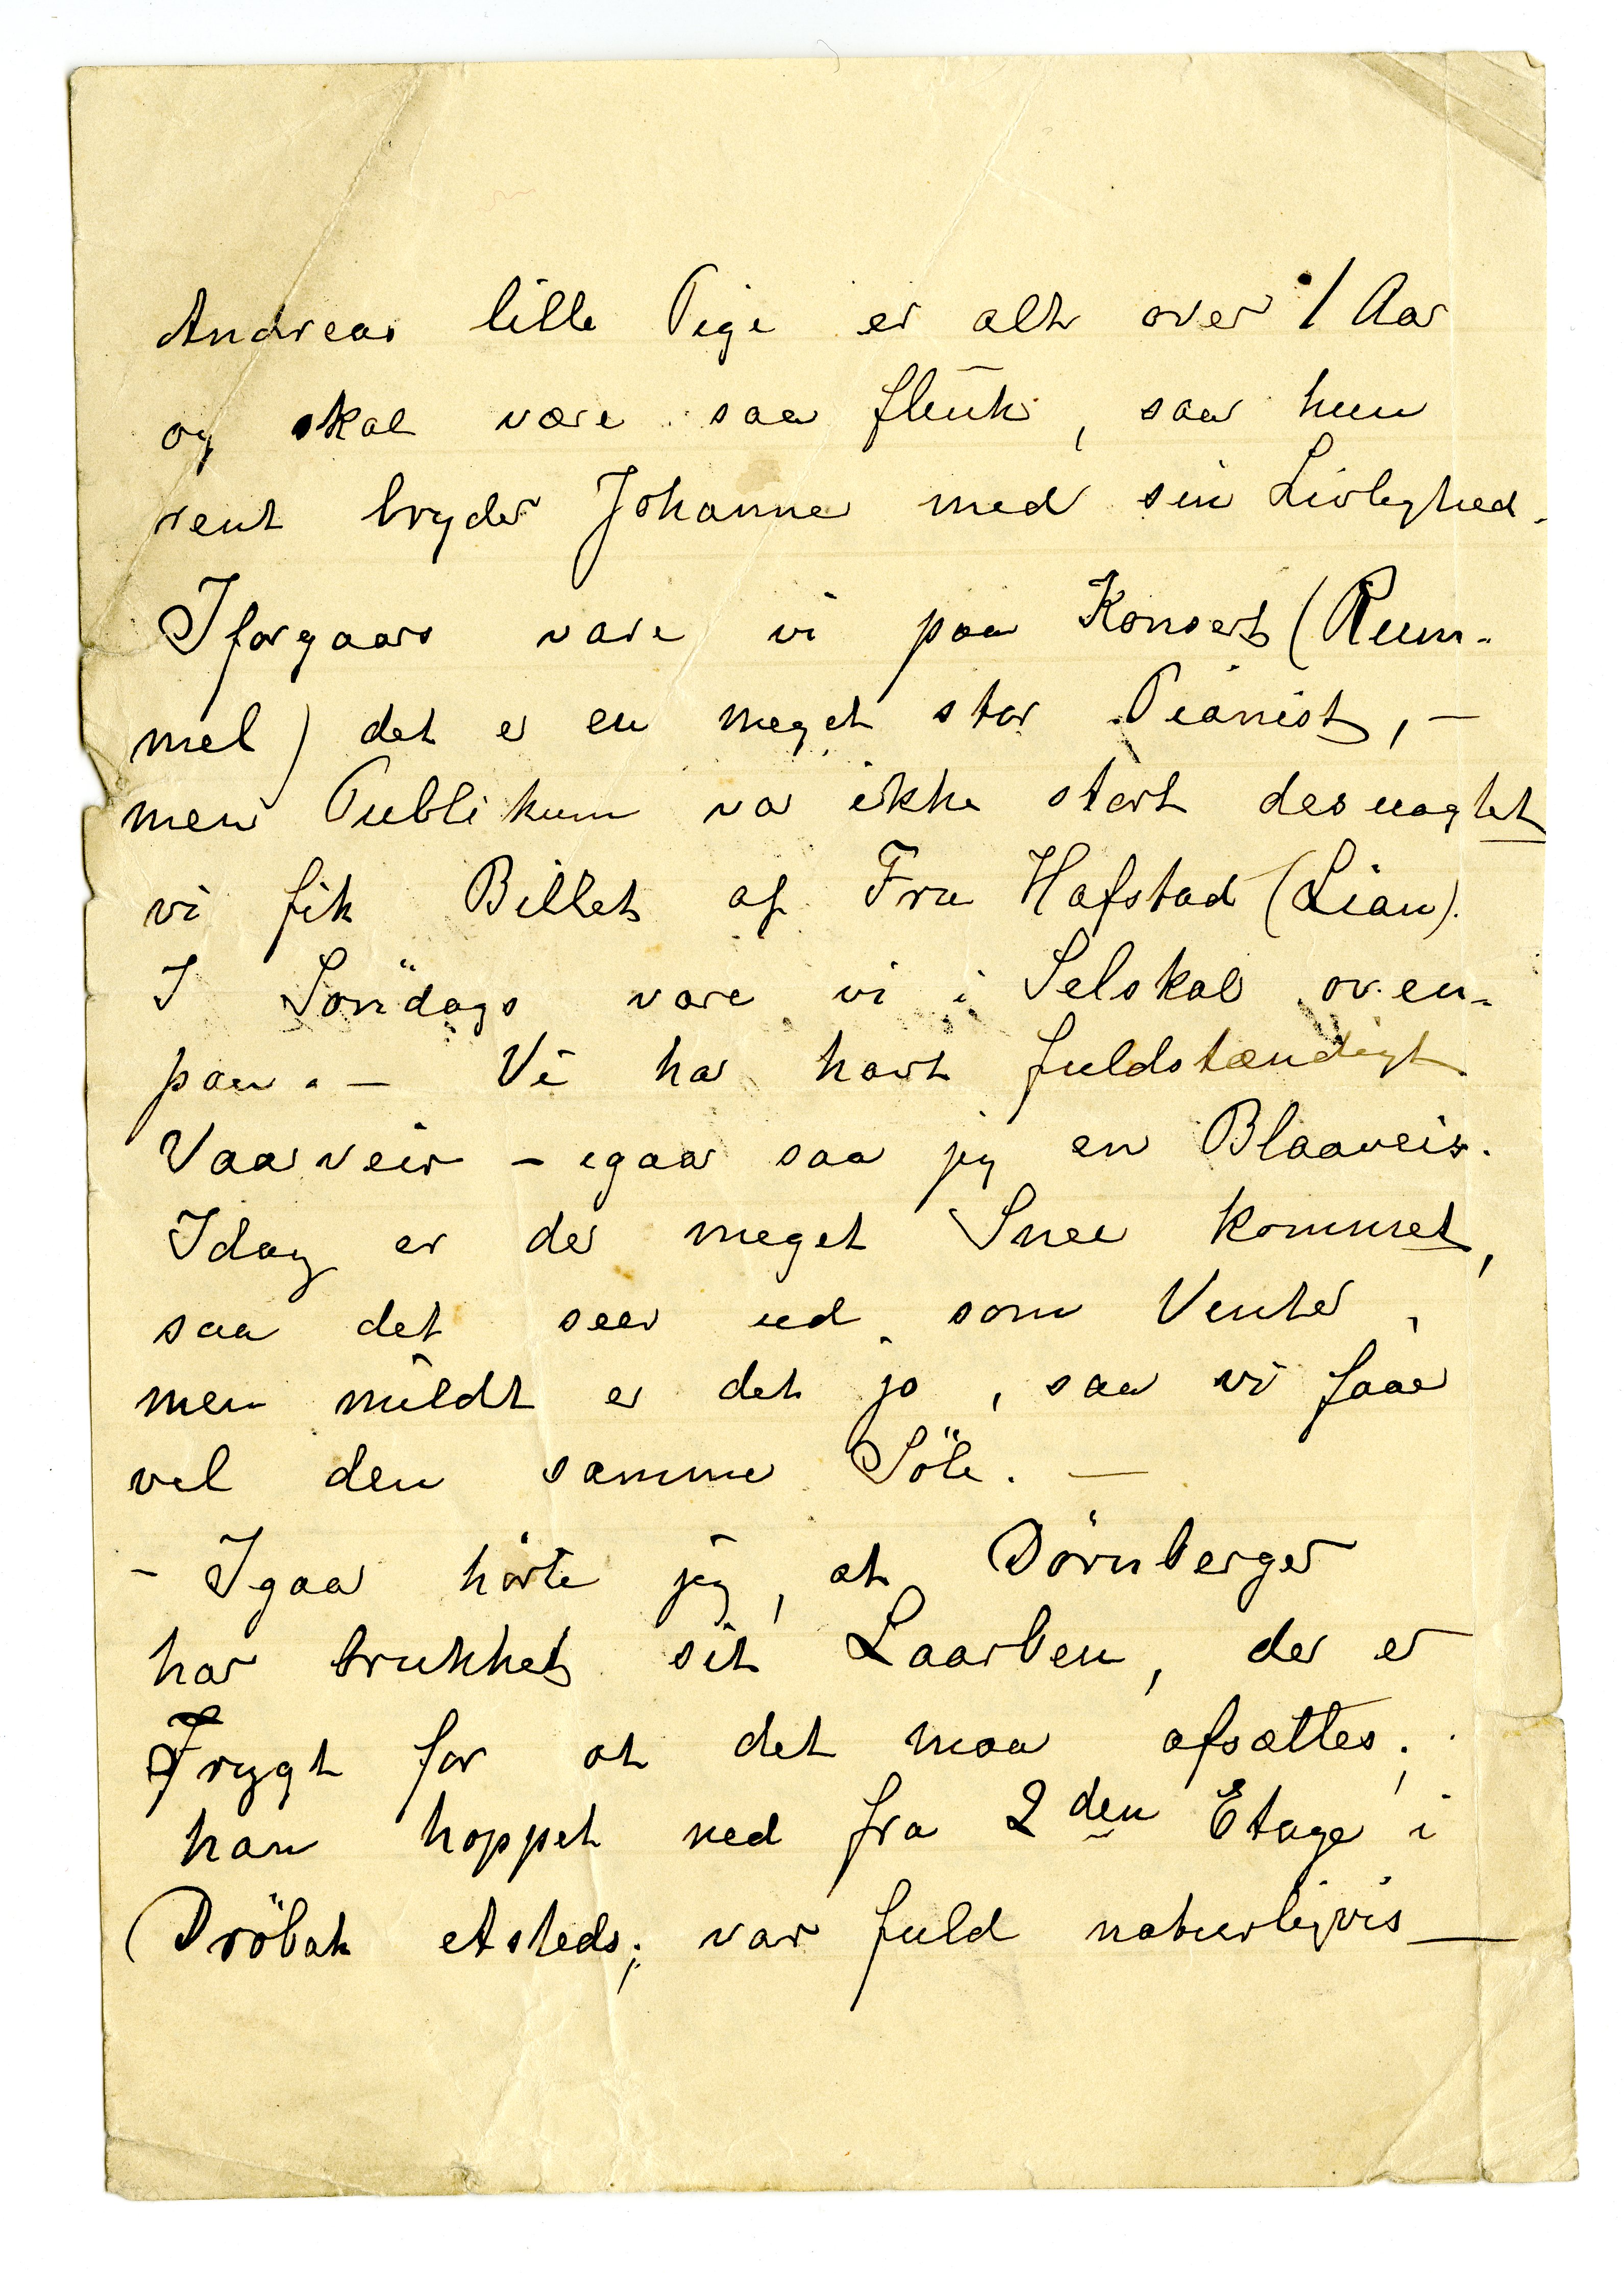 Andreas lille Pige er alt over 1 Aar
og skal være saa flink, saa hun
rent bryder Johanne med sin Livlighed.
Iforgaars vare vi paa Konsert (Rum-
mel) det er en meget stor Pianist, –
men Publikum var ikke stort desuagtet
vi fik Billet af Fru Hafstad (Lian).
I Söndags vare vi i Selskab oven-
paa. – Vi har havt fuldstændigt
Vaarveir – igaar saa jeg en Blaaveis.
Idag er der meget Snee kommet,
saa det seer ud som Vinter,
men mildt er det jo, saa vi faar
vel den samme Söle. –
– Igaar hörte jeg, at Dörnberger
har brukket sit Laarben, der er
Frygt for at det maa afsættes;
han hoppet ned fra 2den Etage i
Dröbak etsteds; var fuld naturligvis –